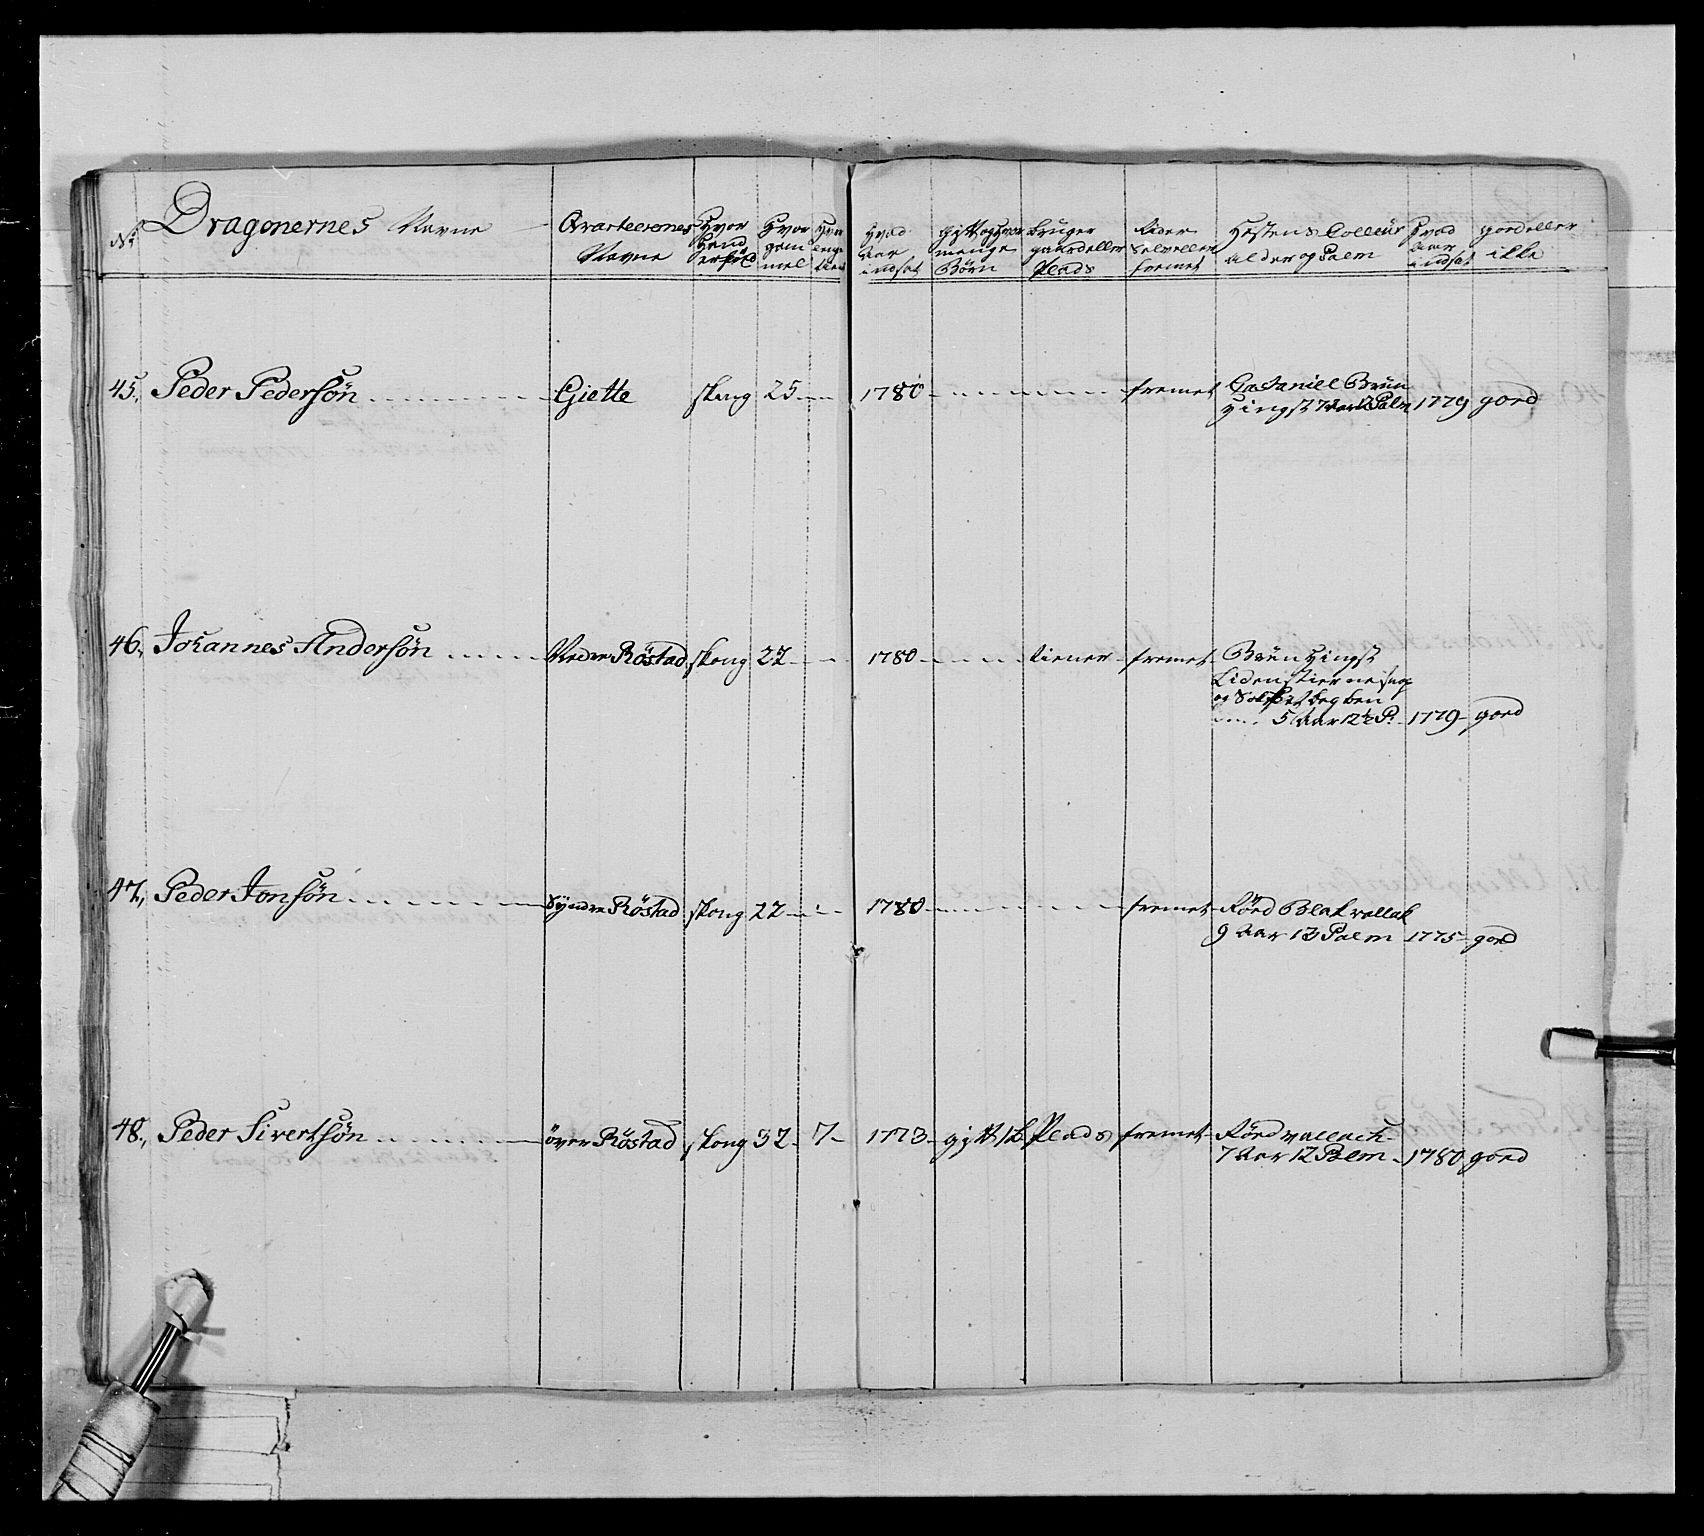 No Dragonernes Navne Qvarteerenes Navne Hvor Hand er föd Hvor gam mel Hvor lenge tient Hvad aar indsat gift og Hvor menge Börn bruger gaard eller Plads Rider Selv eller fremet Hestens Colleur alder og Palm Hvad aar indsat goed eller ikke
45. Peder Pedersön Giette skong 25 1780 fremet Castaniel Brun
Hingst 7 aar 12 Palm 1779 goed
46. Johannes Andersön Nedre Röstad skong 22 1780 tiener fremet Brun Hingst
Liden stierne
og bag ben
5 Aar 12½ P. 1779 goed
47. Peder Jonsön Syndre Röstad skong 22 1780 fremet Röd Blak vallak
9 Aar 13 Palm 1775 goed
48. Peder Sivertsön över Röstad skong 32 7 1773 gift 1 B. Plads fremet Röd vallach
7 Aar 12 Palm 1780 goed